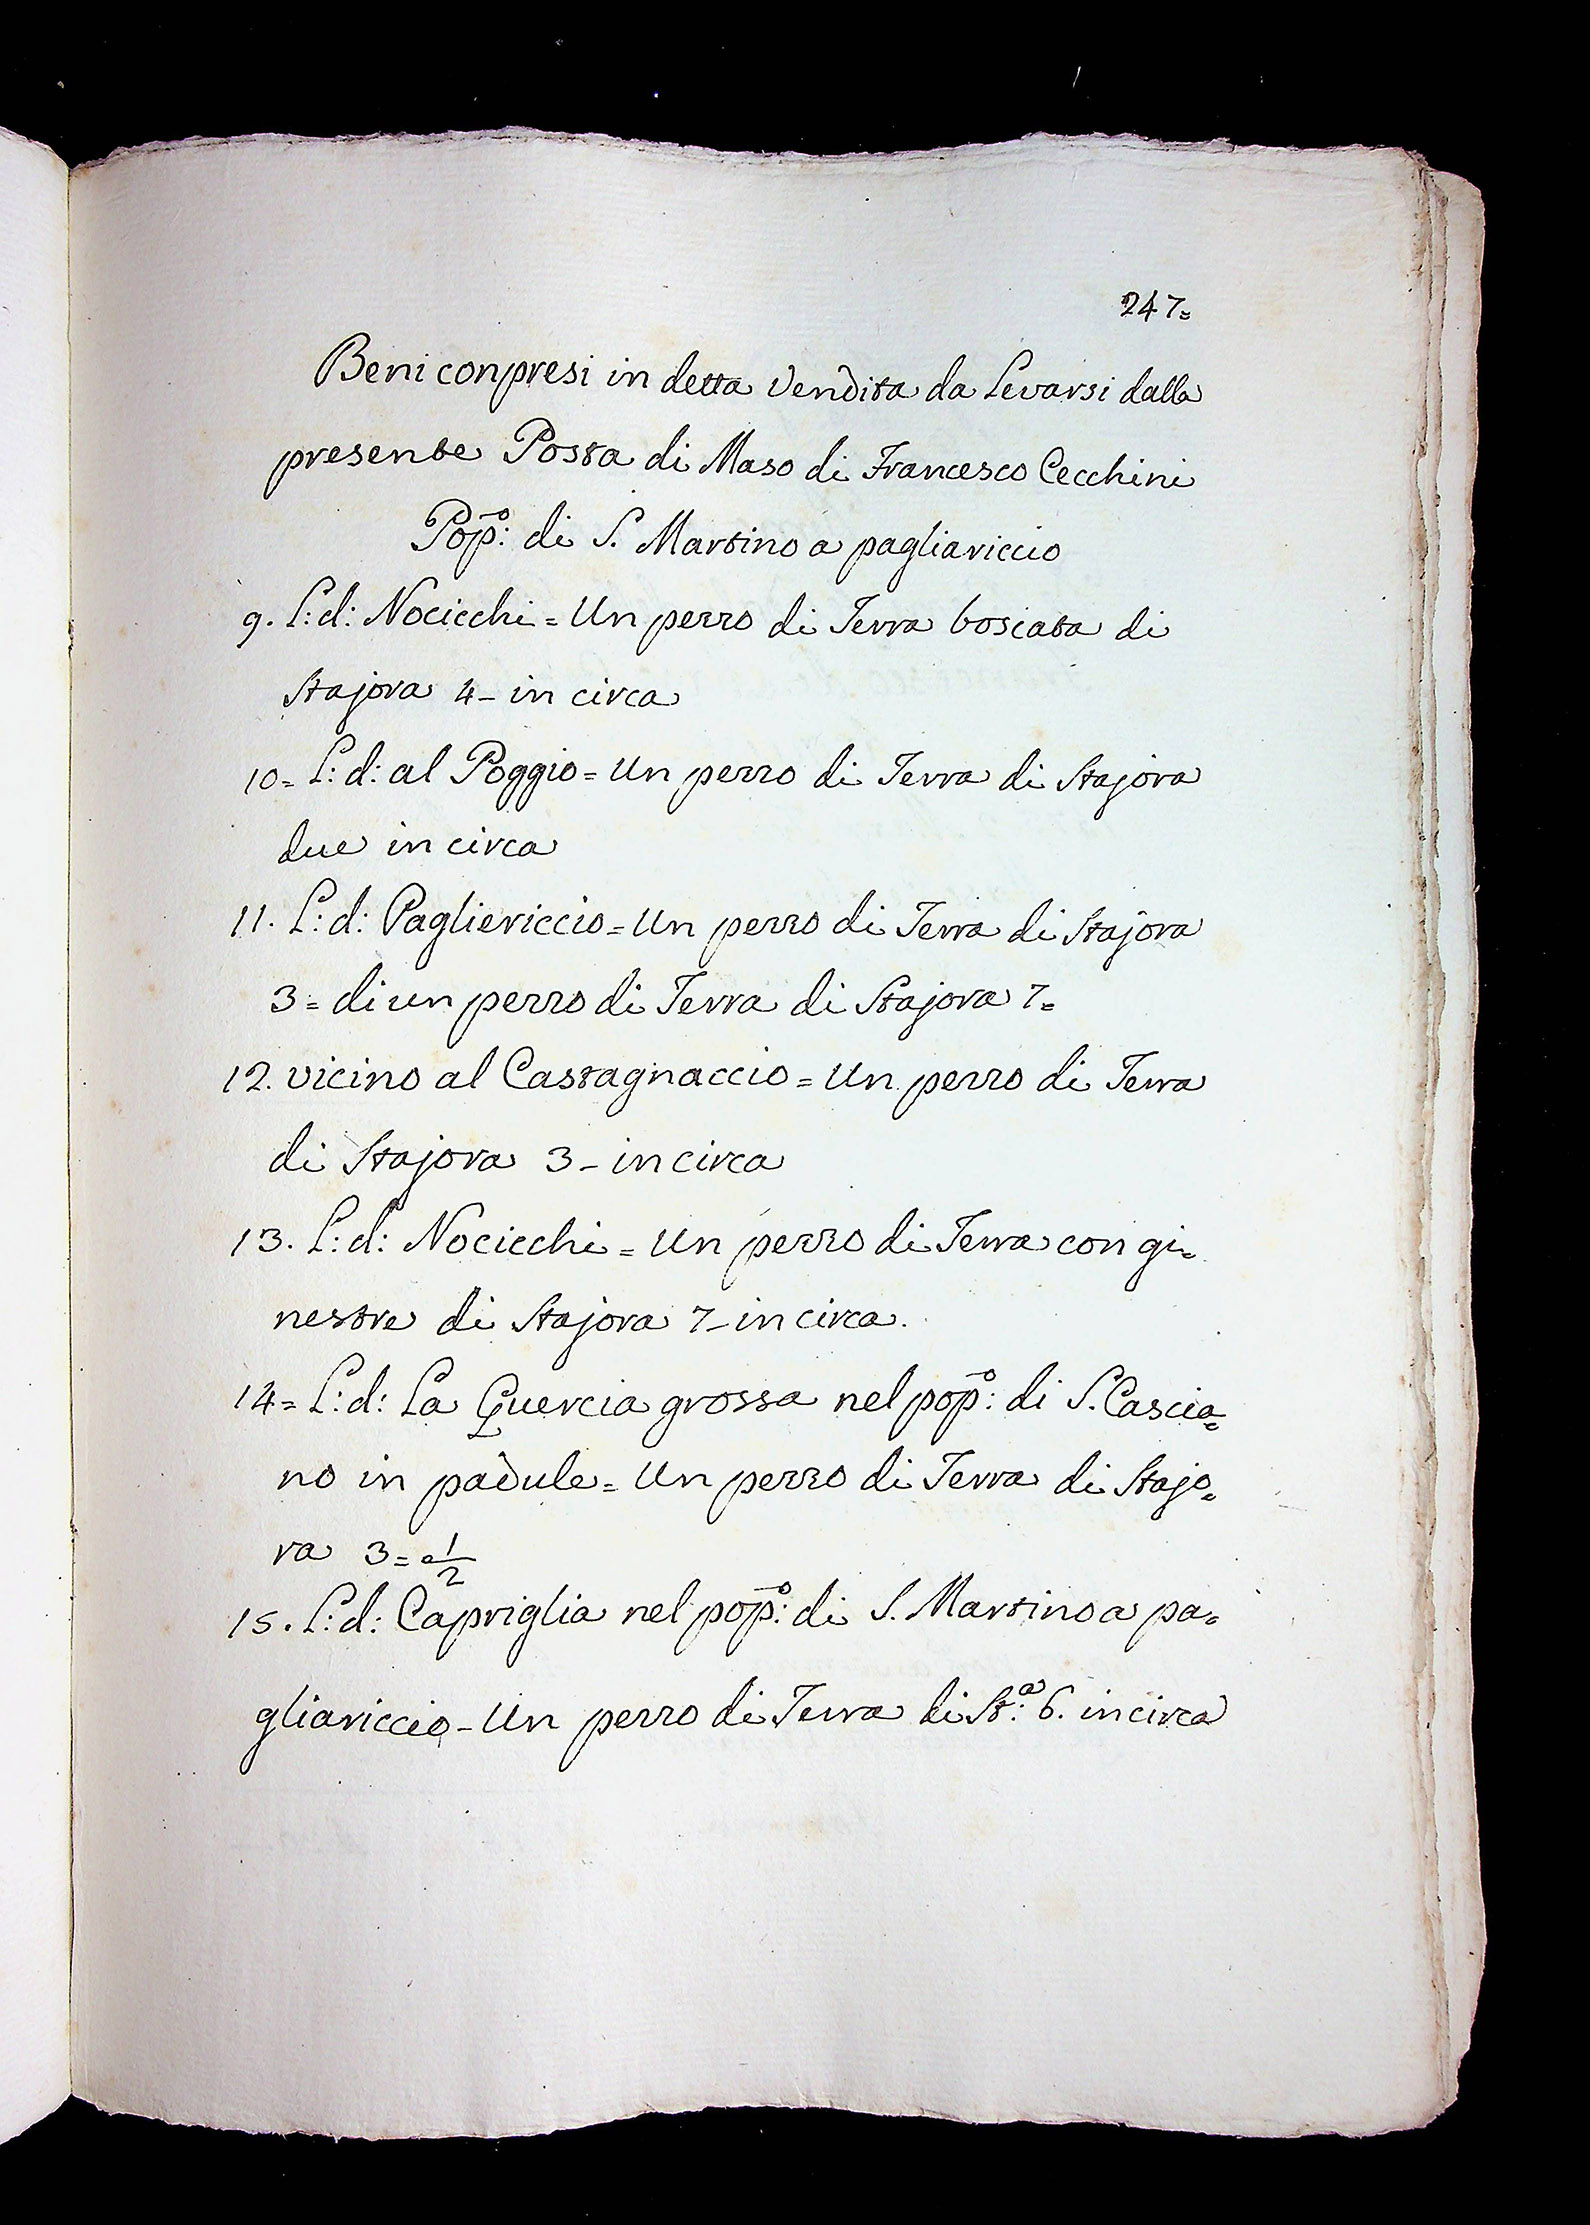 247=
Beni conpresi in detta Vendita da Levarsi dalla
presente Posta di Maso di Francesco Cecchini
Pop̄o: di S. Martino a pagliariccio
9. L: d: Nocicchi = Un pezzo di Terra bosciata di
Stajora 4 - in circa
10 = L: d: al Poggio = Un pezzo di Terra di Stajora
due in circa
11. L: d: Pagliericcio = Un pezzo di Terra di Stajora
3 = di un pezzo di Terra di Stajora 7 =
12. vicino al Castagnaccio = Un pezzo di Terra
di Stajora 3 - in circa
13. L: d: Nocicchi = Un pezzo di Terra con gi=
nestre di Stajora 7 - in circa.
14 = L: d: La Quercia grossa nel pop̄o: di S. Cascia=
no in padule = Un pezzo di Terra di Stajo=
ra 3 = e 1/2
15. L: d: Capriglia nel pop̄o: di S. Martino a pa=
gliariccio - Un pezzo di Terra di St:a 6. in circa